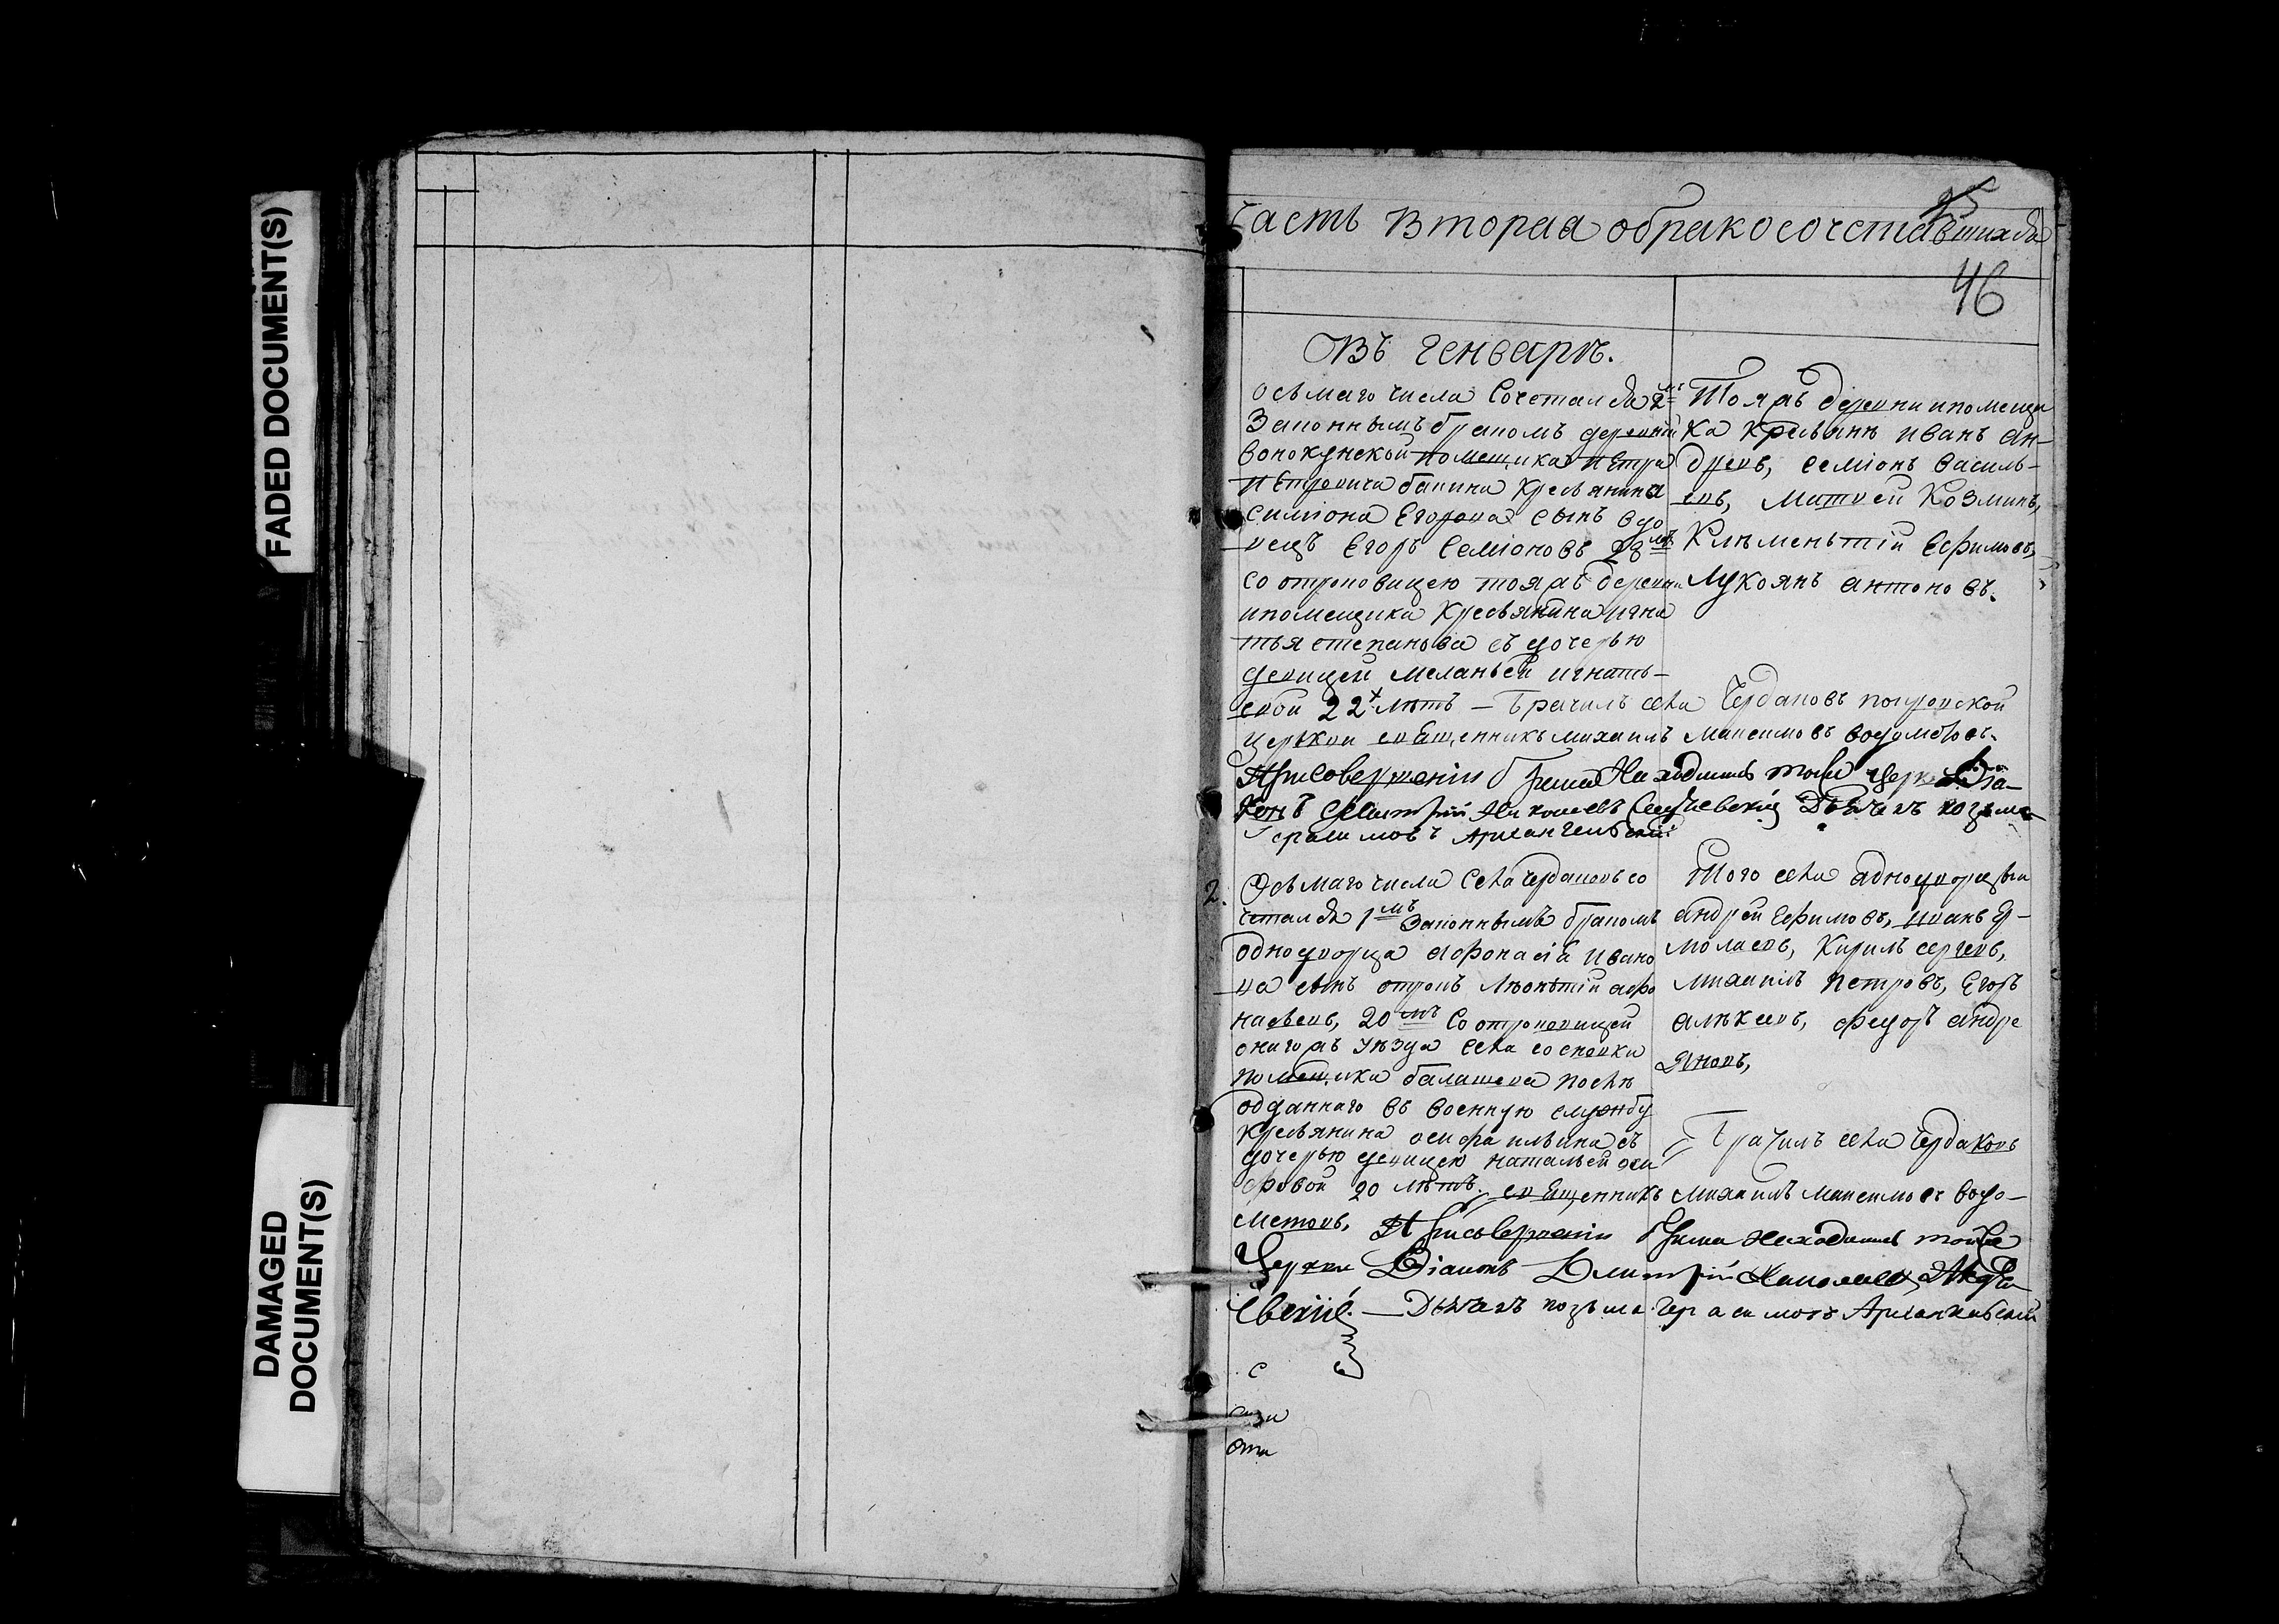 FADED DOCUMENT(S)
DAMAGED
DOCUMENT(S)
45
часть вторая обракосочетавшихся
46
Въ генваре.
осьмаго числа Сочетался 2мъ
Законнымъ бракомъ деревни
помещика петра
петровича бакина Кресьянина
симиона Егорова сынъ вдо
вецъ Егоръ Семионовъ 28 лѣ
со отроковицею тояжъ деревни
ипомещика Кресьянина игна
тья степанова съ дочерью
девицей меланьей игнать
евой 22х летъ — Брачилъ села Чердаковъ покровской
церькви священникъ михаилъ максимовъ водометовъ.
При совержении брака Находились тойже церкв Диа-
конъ Дмитрий Николаевъ Дьячекъ козьма
герасимовъ Архангельский
Тояжъ деревни ипомещи
ка кресьяне иванъ ан-
дреевъ, семионъ василь-
евъ, матвей Козминъ,
Клементий Ефимовъ,
Лукоянъ антоновъ.
2.
Осьмаго числа Села Чердаковъ со
четался 1мъ Законнымъ бракомъ
однодворца афонасия ивано
ва сынъ отрокъ леонътий афо
насьевъ, 20 лѣ Со отроковицей
оногожъ уезда села сосновки
помещика балашева после
отданнаго въ военную службу
Кресьянина осифа ильина съ
дочерью девицею натальей оси
фовой 20 летъ. священникъ михаилъ максимовъ водо-
метовъ, При совержении брака находились тойже
Церкви Диаконъ Дмитрий Николаевъ
Дьячекъ козьма Герасимовъ Архангельский
с
Того села аднодворцы
андрей Ефимовъ, иванъ Ер-
молаевъ, Кирилъ сергеевъ,
михаилъ петровъ, Егоръ
алексеевъ, федоръ андре
яновъ,
Брачилъ села Чердаковъ